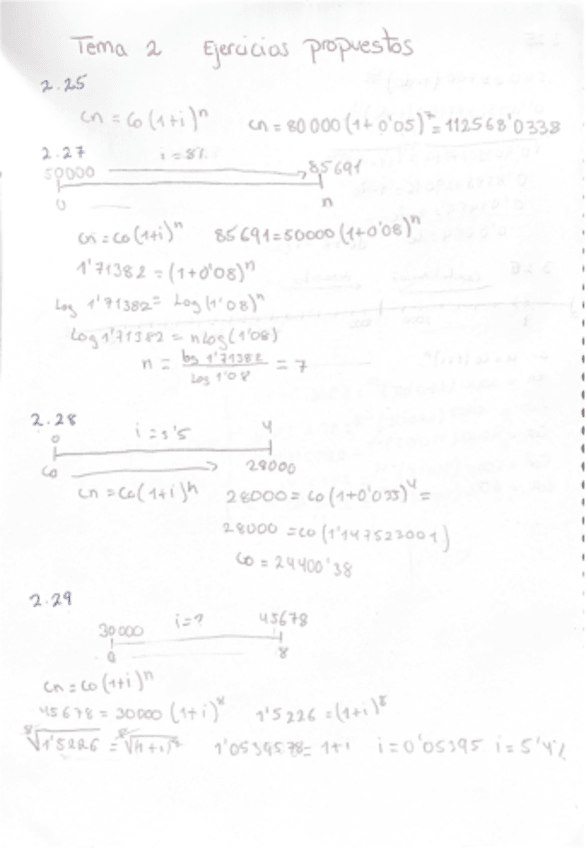 Tema 2 Ejercicios propuestos
2.25
Cn = Co (1+i)ⁿ Cn = 80 000 (1+0'05)⁷ = 112568'0338
2.27 i = 8%
50000 85691
0 n
Cn = Co (1+i)ⁿ 85691 = 50000 (1+0'08)ⁿ
1'71382 = (1+0'08)ⁿ
Log 1'71382 = Log (1'08)ⁿ
Log 1'71382 = n log (1'08)
n = log 1'71382 / Log 1'08 = 7
2.28
0 4
Co 28000
Cn = Co (1+i)ⁿ 28000 = Co (1+0'035)⁴ =
28000 = Co (1'147523001)
Co = 24400'38
2.29
30 000 i = ? 45678
0 8
Cn = Co (1+i)ⁿ
45678 = 30000 (1+i)⁸ 1'5226 = (1+i)⁸
⁸√1'5226 = ⁸√(1+i)⁸ 1'0539578 = 1+i i = 0'05395 i = 5'4%